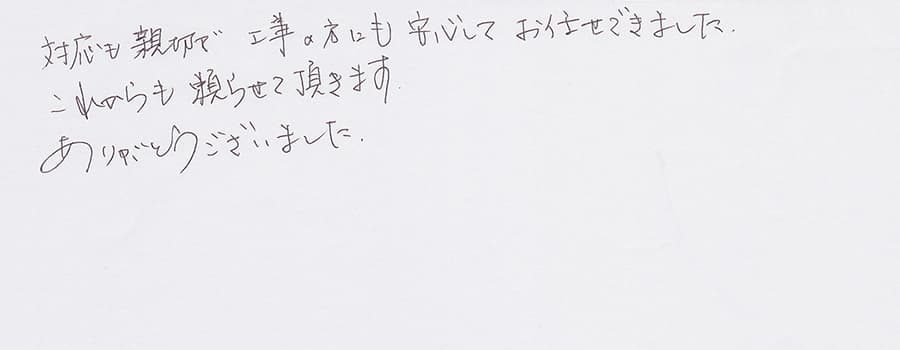 対応も親切で 工事の方にも安心してお任せできました.
これからも頼らせて頂きます
ありがとうございました.